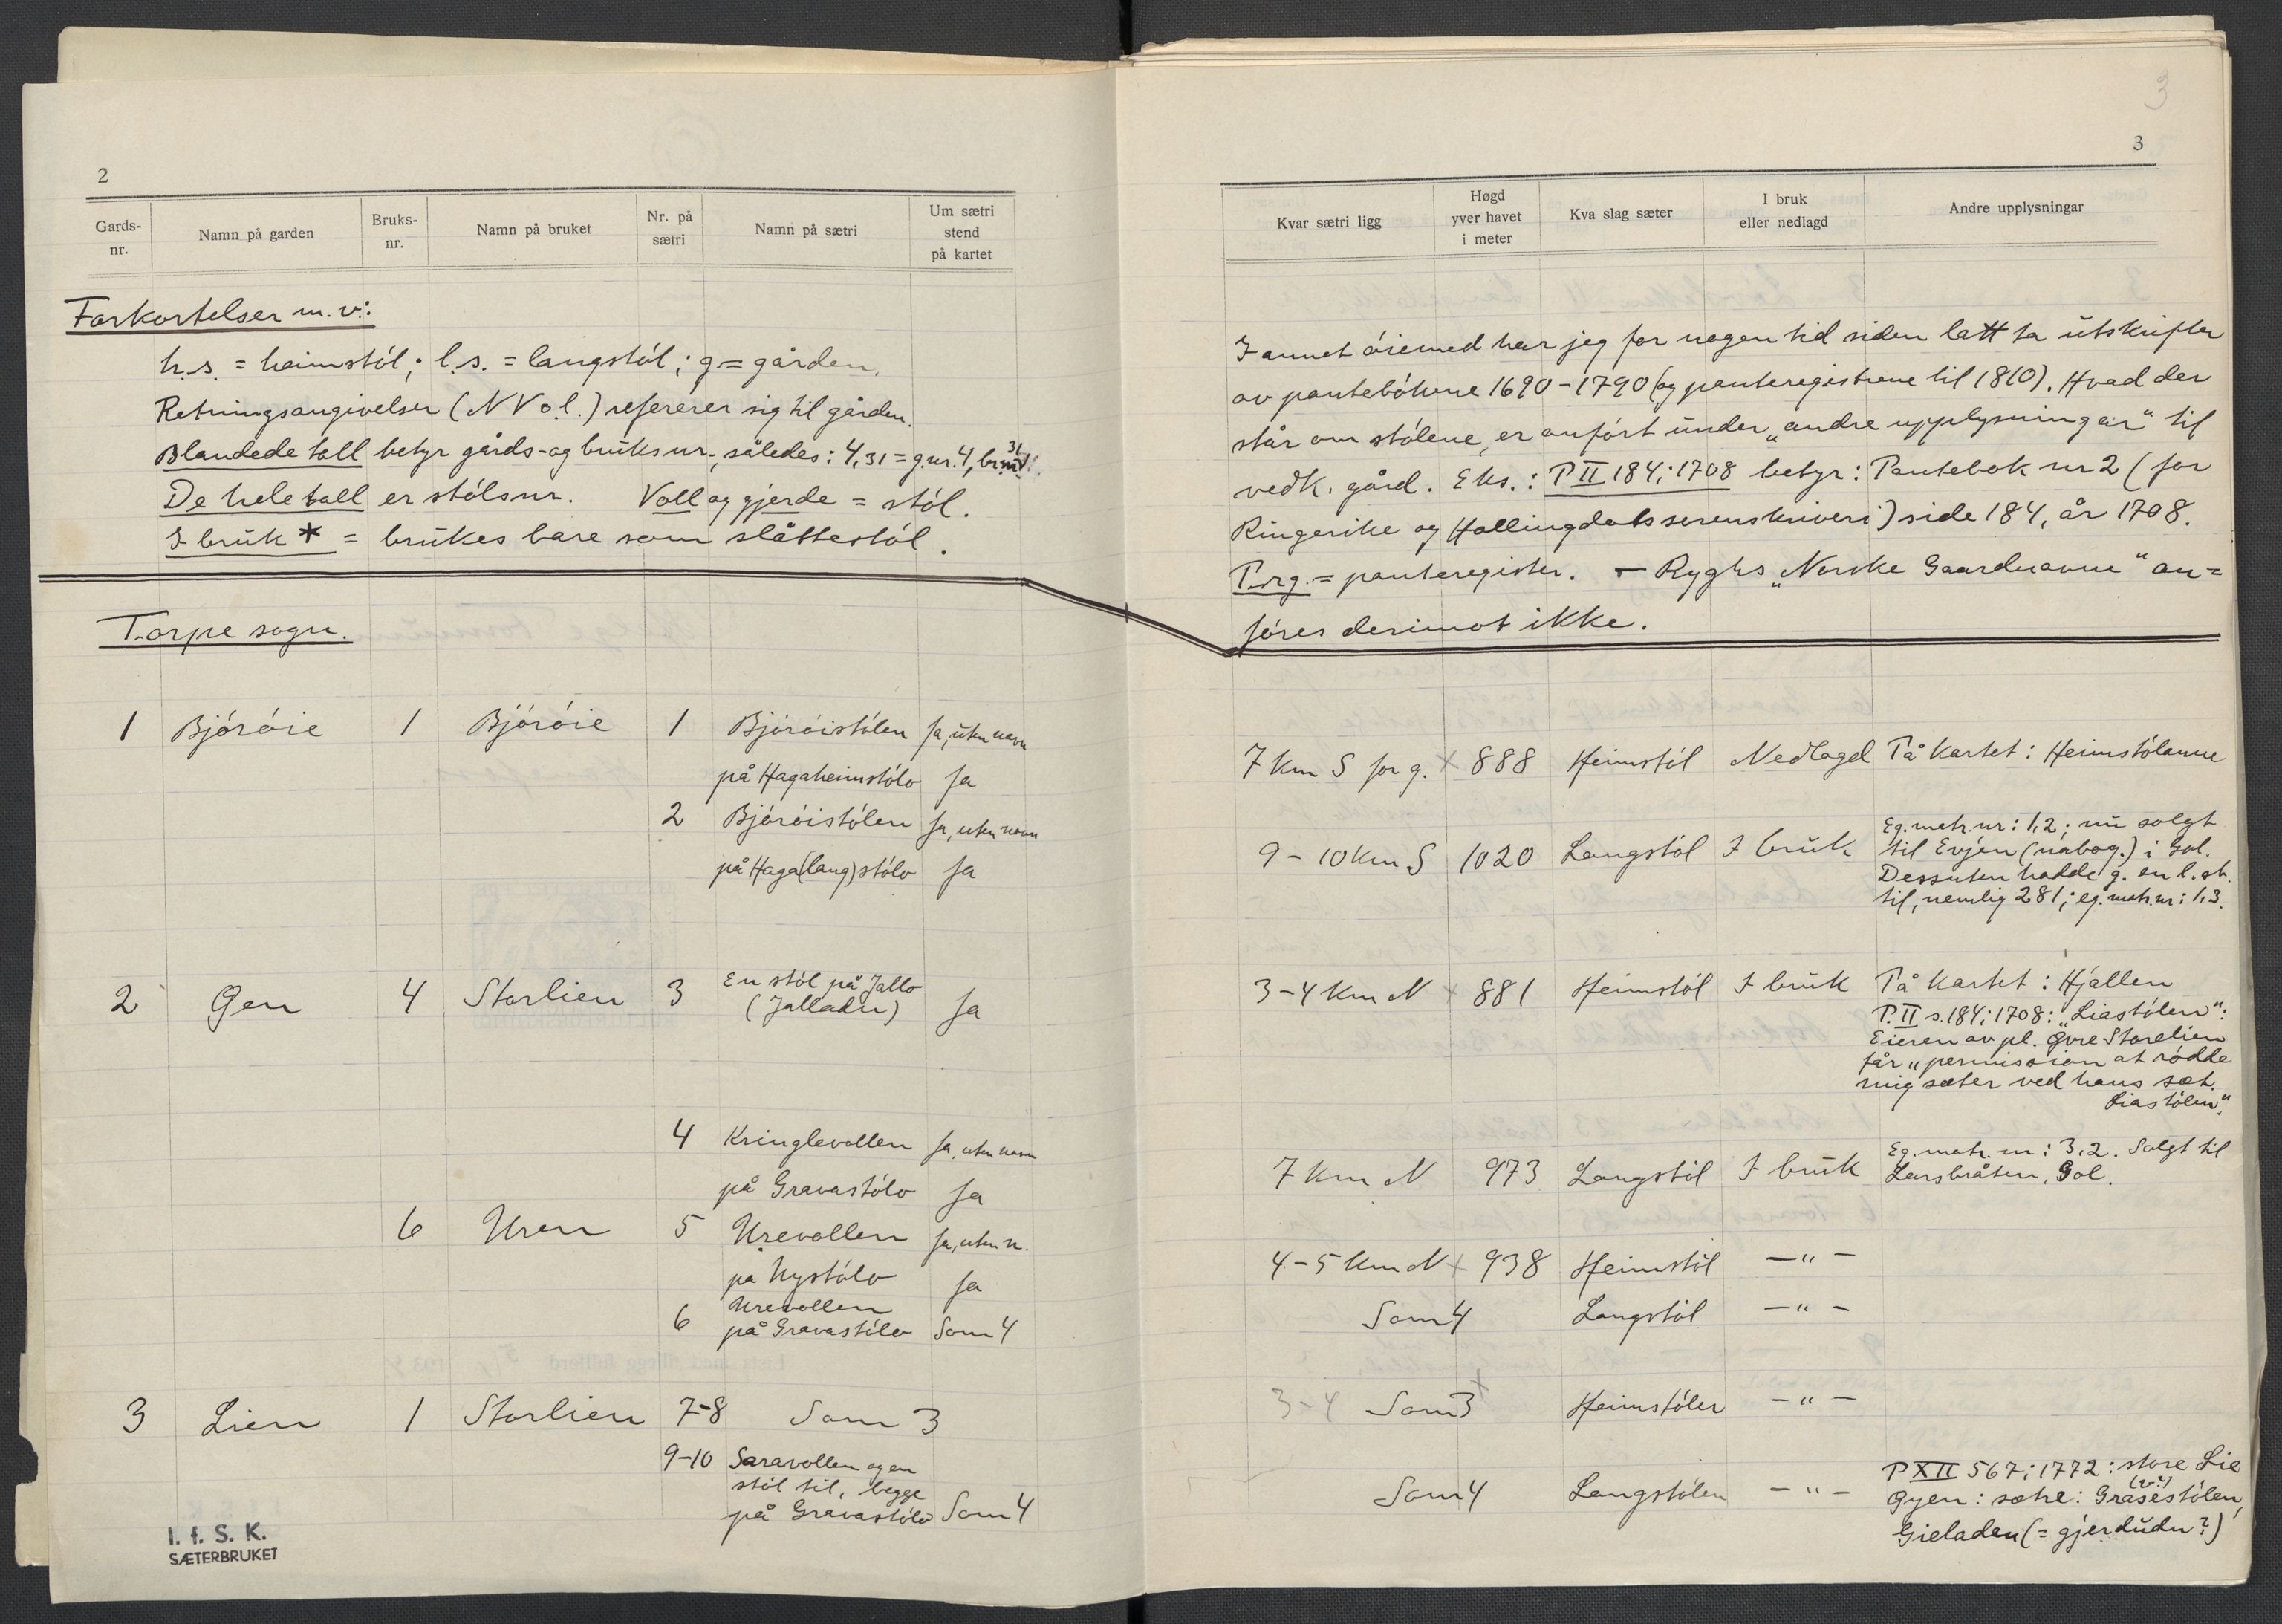 2
Gards-nr. Namn på garden Bruks-nr. Namn på bruket Nr. på sætri Namn på sætri Um sætri stend på kartet
Forkortelser m.v.:
h.s. = heimstól; l.s. = langstól; g = gården.
Retningsangivelser (N V o.l.) refererer sig til gården.
Blandede tall betyr gårds- og bruksnr., således: 4,31 = g.nr. 4, br.nr. 31
De hele tall er stólsnr. Voll og gjerde = stól.
I bruk * = brukes bare som slåttestól.
Torpe sogn.
1 Bjóróie 1 Bjóróie 1 Bjóróistólen Ja, uten navn
på Hagaheimstólo Ja
2 Bjóróistólen Ja, uten navn
på Haga(lang)stólo Ja
2 Gen 4 Storlien 3 En stól på Jallo
(Jalladn) Ja
4 Kringlevollen Ja, uten navn
på Gravastólo Ja
6 Uren 5 Urevollen Ja, uten n.
på Nystólo Ja
6 Urevollen
på Gravastólo Som 4
3 Lien 1 Storlien 7-8 Som 3
9-10 Saravollen og en
stól til, begge
på Gravastólo Som 4
I. f. S. K.
SÆTERBRUKET
3
3
Kvar sætri ligg Høgd yver havet i meter Kva slag sæter I bruk eller nedlagd Andre upplysningar
I annet óiemed har jeg for nogen tid siden latt ta utskrifter
av pantebókene 1690-1790 (og panteregistrene til 1810). Hvad der
står om stólene, er anfórt under „andre upplysningar" til
vedk. gård. Eks.: P II 184; 1708 betyr: Pantebok nr 2 (for
Ringerike og Hallingdals sorenskriveri) side 184, år 1708.
P.rg. = panteregister. — Ryghs „Norske Gaardnavne" an=
fóres derimot ikke.
7 km S for g. x 888 Heimstól Nedlagd På kartet: Heimstólanne
9-10 km S 1020 Langstól I bruk Eg. matr.nr: 1,2; nu solgt
til Evjen (nabog.) i Gol.
Dessuten hadde g. en l.st.
til, nemlig 281; eg. matr.nr: 1,3.
3-4 km N x 881 Heimstól I bruk På kartet: Hjallen
P. II s. 184; 1708: „Liastólen":
Eieren av pl. Øvre Storelien
får „permission atródde
mig sæter ved hans sæt.
Liastólen".
7 km N 973 Langstól I bruk Eg. matr. nr: 3,2. Solgt til
Larsbråten, Gol.
4-5 km N x 938 Heimstól — " —
Som 4 Langstól — " —
3-4 Som 3 x Heimstóler — " —
Som 4 Langstólen — " — P XII 567; 1772: store Lie
Gyen: sætre: Grasestólen, (v?)
Gieladen (= gjerdudn?)